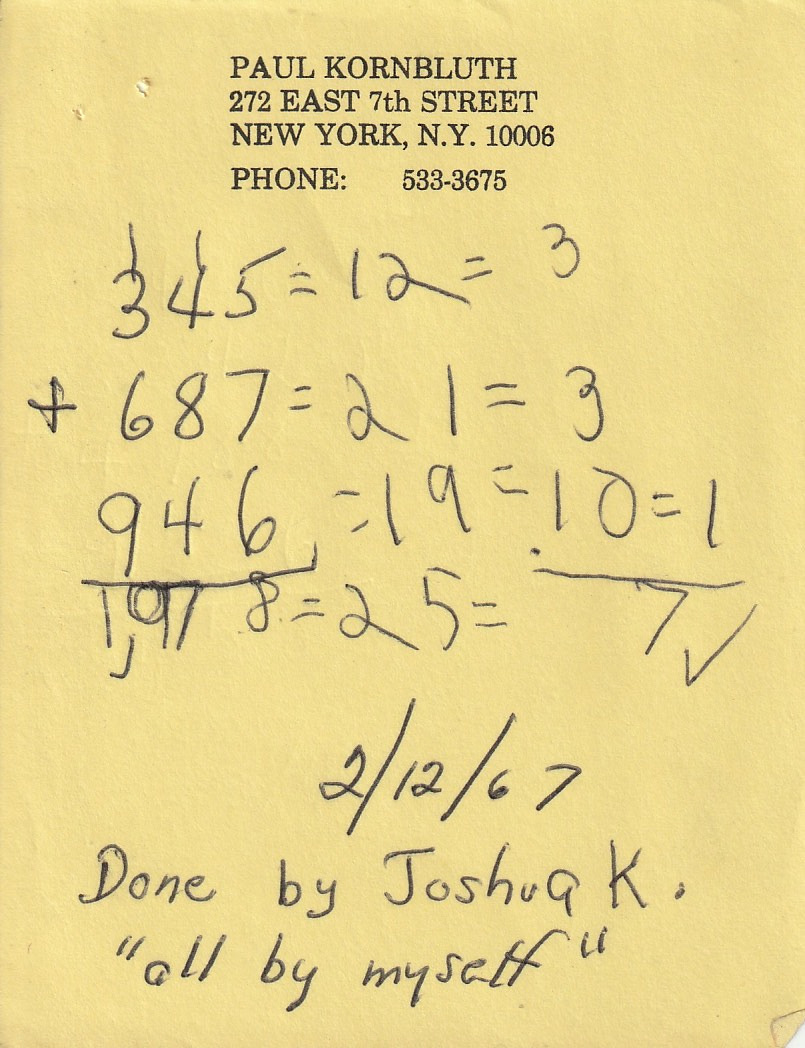 PAUL KORNBLUTH
272 EAST 7th STREET
NEW YORK, N.Y. 10006
PHONE: 533-3675
1 1
345 = 12 = 3
+ 687 = 21 = 3
946 = 19 = 10 = 1
1,978 = 25 = 7 ✓
2/12/67
Done by Joshua K.
"all by myself"